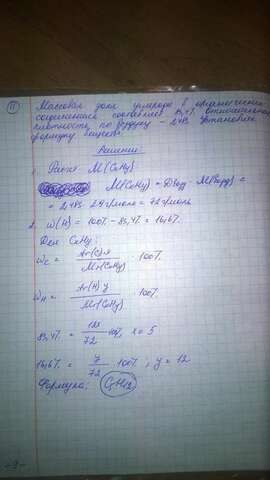 11
Массовая доля углерода в органическом
соединении составляет 83,4%. Относительная
плотность по воздуху – 2,483. Установите
формулу вещества.
Решение:
1. Расчёт M(CxHy)
M(CxHy) = Dвозд · M(возд) =
= 2,483 · 29 г/моль = 72 г/моль
2. ω(H) = 100% - 83,4% = 16,6%
Для CxHy:
ωC = Ar(C)·x / Mr(CxHy) · 100%
ωH = Ar(H)·y / Mr(CxHy) · 100%
83,4% = 12x / 72 · 100%, x = 5
16,6% = y / 72 · 100%; y = 12
Формула: C5H12